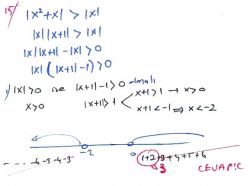 15)
|x²+x| > |x|
|x| |x+1| > |x|
|x| |x+1| - |x| > 0
|x| ( |x+1| - 1) > 0
|x| > 0 ise |x+1| - 1 > 0 olmalı
x > 0 |x+1| > 1 x+1 > 1 → x > 0
x+1 < -1 ⇒ x < -2
-2 0
-6 -5 -4 -3 1+2+3+4+5+6
3 CEVAP: C